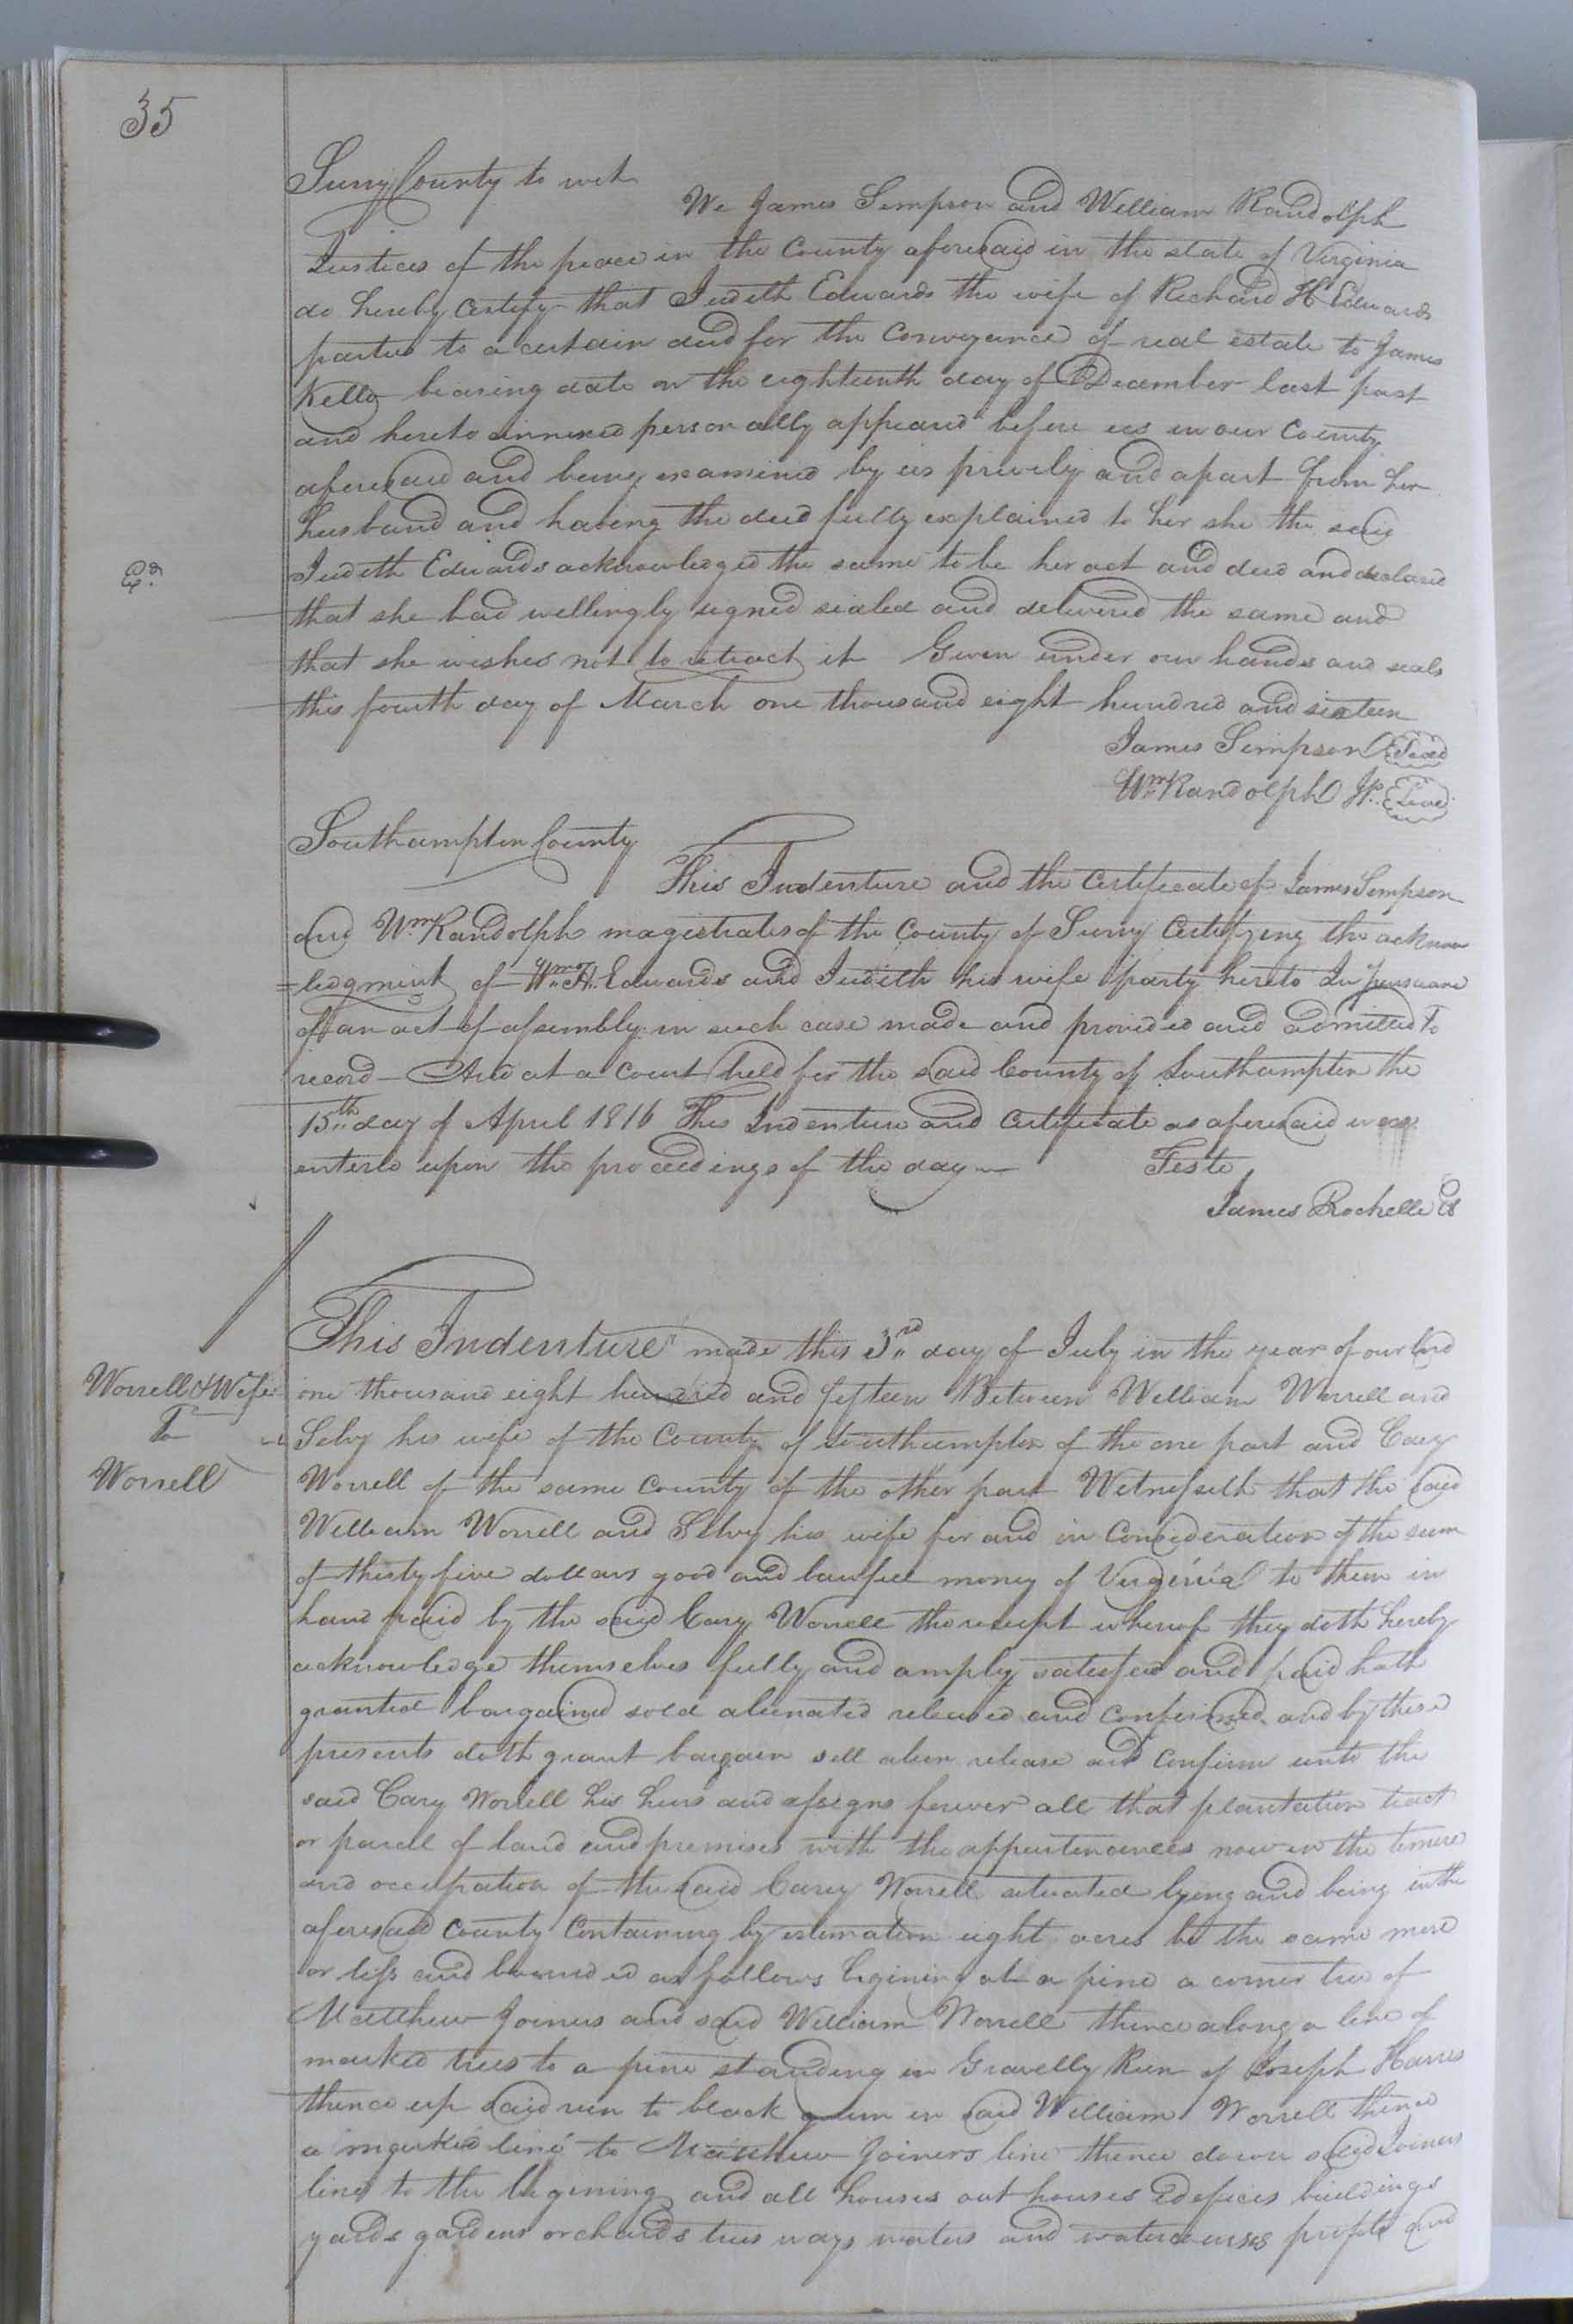 35
Surry County to wit
We James Sempson and William Randolph
Justices of the peace in the County aforesaid in the state of Virginia
do hereby Certify that Judith Edwards the wife of Richard H Edwards
parties to a certain deed for the Conveyance of real estate to James
Kello bearing date on the eighteenth day of December last past
and hereto annexed personally appeared before us in our County
aforesaid and being examined by us privily and apart from her
husband and having the deed fully explained to her she the said
Judith Edwards acknowledged the same to be her act and deed and declared
that she had willingly signed sealed and delivered the same and
that she wishes not to retract it Given under our hands and seals
this fourth day of March one thousand eight hundred and sixteen
James Sempson Seal
Wm Randolph JP. Seal
Southampton County
This Indenture and the Certificate of James Sempson
and Wm Randolph magistrates of the County of Surry Certifying the acknow
=ledgment of Wm H. Edwards and Judith his wife party hereto In pursuance
of an act of assembly in such case made and provided and admitted to
record - And at a Court held for the said County of Southampton the
15th day of April 1816 This Indenture and Certificate as aforesaid was
enterd upon the proceedings of the day
Teste
James Rochelle
This Indenture made this 3rd day of July in the year of our lord
Worrell & Wife
To
Worrell
one thousand eight hundred and fifteen Between William Worrell and
Selvy his wife of the County of Southampton of the one part and Cary
Worrell of the same County of the other part Witnesseth that the said
William Worrell and Selvy his wife for and in Consideration of the sum
of thirty five dollars good and lawfull money of Virginia to them in
hand paid by the said Cary Worrell the receipt whereof they doth hereby
acknowledge themselves fully and amply satisfied and paid hath
granted bargained sold alienated released and Confirmed and by these
presents doth grant bargain sell alien release and Confirm unto the
said Cary Worrell his heirs and assigns forever all that plantation tract
or parcell of land and premises with the appurtenances now in the tenure
and occupation of the said Carey Worrell situated lying and being in the
aforesaid County Containing by estimation eight acres be the same more
or less and bounded as follows begining at a pine a corner tree of
Matthew Joiners and said William Worrell thence along a line of
marked trees to a pine standing in Gravelly Run of Joseph Harris
thence up said run to black gum in said William Worrell thence
a marked line to Matthew Joiners line thence down said Joiners
line to the begining and all houses out houses edefices buildings
yards gardens orchards trees ways waters and watercourses profits and